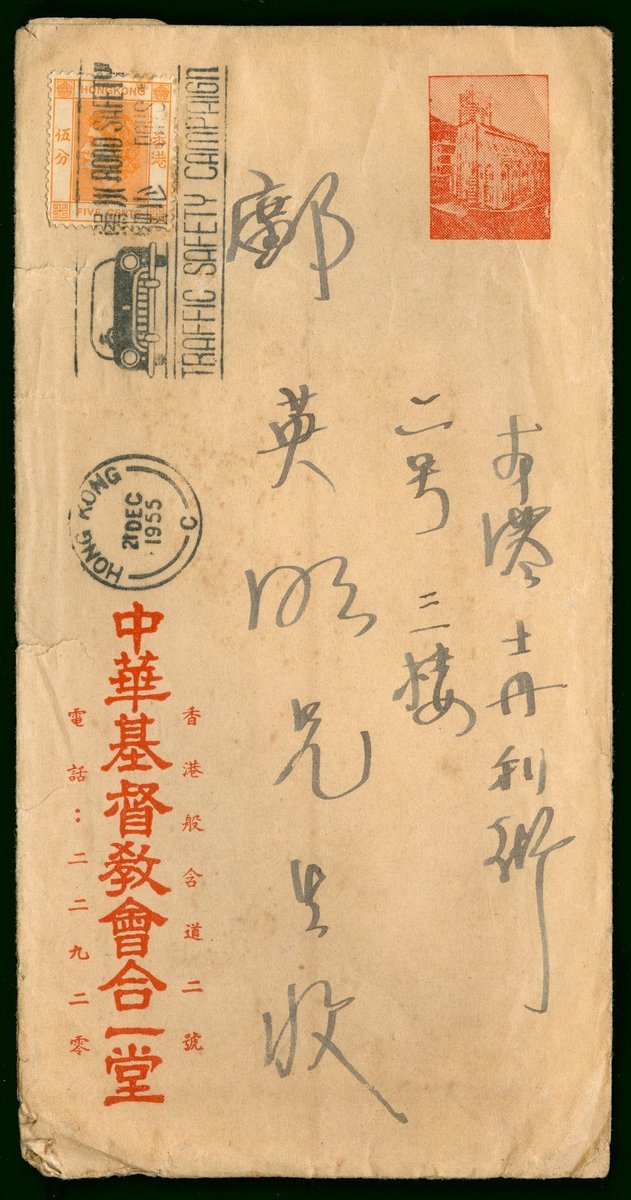 本港士丹利街
二号三楼
鄺英
先生收
HONGKONG
香港
伍分
FIVE
ROAD SAFETY
TRAFFIC SAFETY CAMPAIGN
HONG KONG
21 DEC
1955
C
香港般含道二號
中華基督教會合一堂
電話：二二九二零